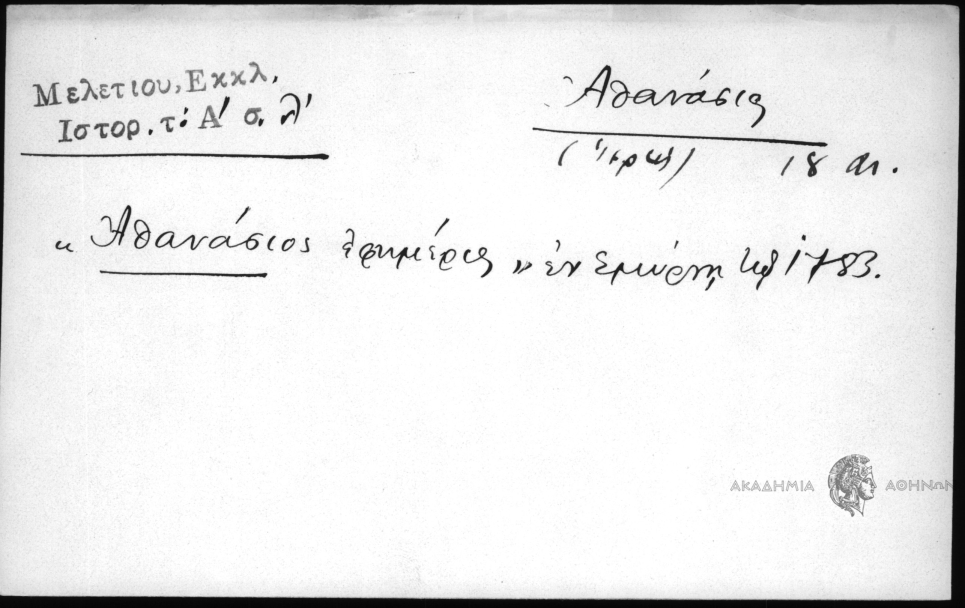 Μελετιου, Εκκλ,
Ιστορ. τ: Α' σ. λ'
Ἀθανάσιος
(ἱερεὺς) 18 αι.
« Ἀθανάσιος ἐφημέριος » ἐν Σμύρνῃ 1783.
ΑΚΑΔΗΜΙΑ ΑΘΗΝΩΝ